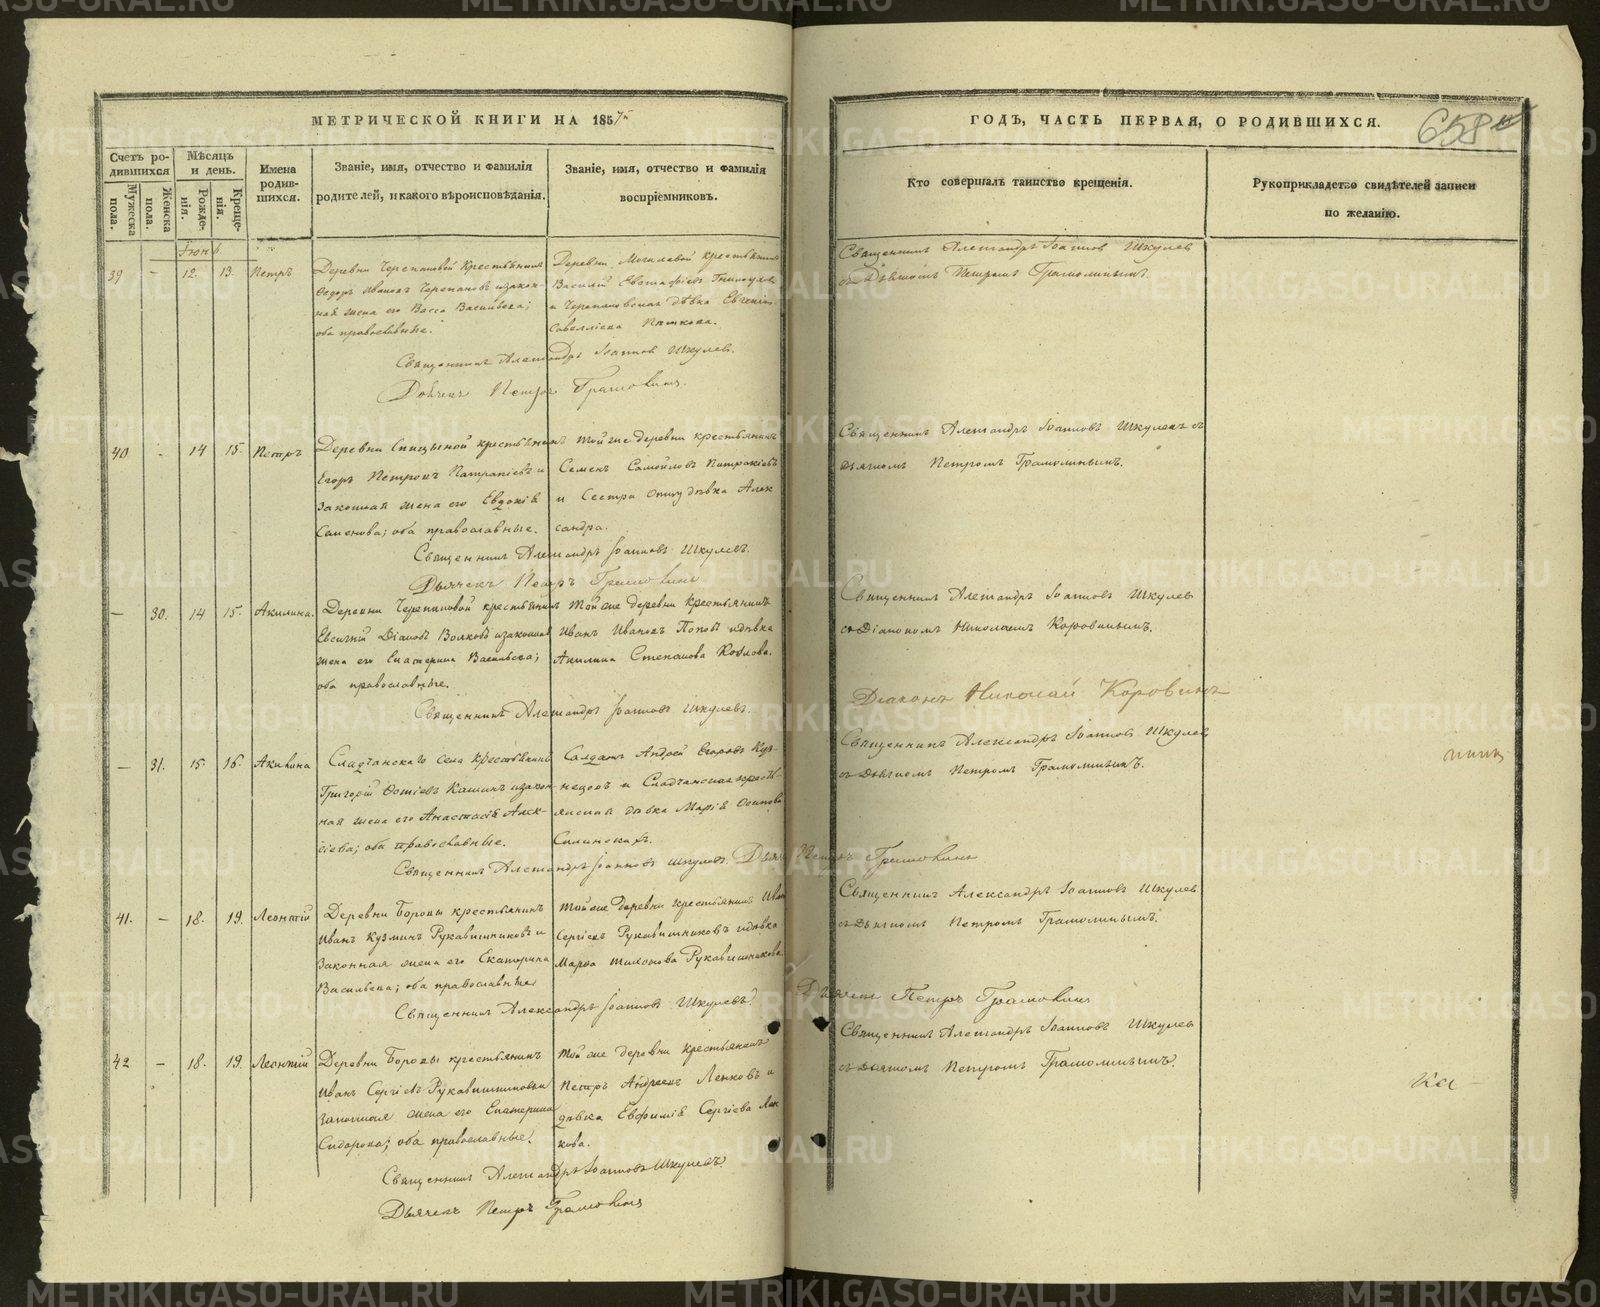 МЕТРИЧЕСКОЙ КНИГИ НА 1857
ГОДЪ, ЧАСТЬ ПЕРВАЯ, О РОДИВШИХСЯ.
658
Счетъ родившихся
Мужеска пола.
Женска пола.
Мѣсяцъ и день.
Рожденія.
Крещенія.
Имена родившихся.
Званіе, имя, отчество и фамилія
родителей, и какого вѣроисповѣданія.
Званіе, имя, отчество и фамилія
воспріемниковъ.
Кто совершалъ таинство крещенія.
Рукоприкладство свидѣтелей записи
по желанію.
Іюнь
39 - 12. 13. Петръ
Деревни Черепановой крестьянинъ
Ѳедоръ Ивановъ Черепановъ и закон-
ная жена его Васса Васильева;
оба православные.
Деревни Могилевой крестьянинъ
Василій
и Черепановская дѣвка Евгенія
Савелліева
Священникъ Александръ Іоанновъ Шкулев
съ Дьячкомъ Петромъ Грамолинымъ.
Священникъ Александръ Іоанновъ Шкулев.
Дьячекъ Петръ Грамолинъ.
40 - 14 15. Петръ
Деревни Спицыной крестьянинъ
Егоръ Петровъ Патракѣевъ и
законная жена его Евдокія
Семенова; оба православные.
Той же деревни крестьянинъ
Семенъ Самойловъ Патракѣевъ
и Сестра дѣвка Алек
сандра.
Священникъ Александръ Іоанновъ Шкулевъ съ
дьячкомъ Петромъ Грамолинымъ.
Священникъ Александръ Іоанновъ Шкулевъ.
Дьячекъ Петръ Грамолинъ
— 30. 14 15. Акилина.
Деревни Черепановой крестьянинъ
Евсигній Волковъ и законная
жена его Екатерина Васильева;
оба православные.
Той же деревни крестьянинъ
Иванъ Ивановъ Поповъ и дѣвка
Акилина Степанова Козлова.
Священникъ Александръ Іоанновъ Шкулев
съ Діакономъ Николаемъ Коровинымъ.
Священникъ Александръ Іоанновъ Шкулевъ.
Діаконъ Николай Коровинъ
— 31. 15. 16. Акилина
села крестьянинъ
Григорій Кашинъ и закон-
ная жена его Анастасія Алек-
сіева; оба православные.
Солдатъ Андрей Егоровъ Куз-
нецовъ и кресть-
янская дѣвка Марія Осипова
Священникъ Александръ Іоанновъ Шкулев
съ Дьячкомъ Петромъ Грамолинымъ.
Священникъ Александръ Іоанновъ Шкулевъ. Дьячекъ Петръ Грамолинъ
41. - 18. 19. Леонтій
Деревни Боровы крестьянинъ
Иванъ Кузминъ Рукавишниковъ и
Законная жена его Екатерина
Васильева; оба православные
Той же деревни крестьянинъ Иванъ
Сергіевъ Рукавишниковъ и дѣвка
Марѳа Рукавишникова
Священникъ Александръ Іоанновъ Шкулев
съ Дьячкомъ Петромъ Грамолинымъ.
Священникъ Александръ Іоанновъ Шкулевъ.
Дьячекъ Петръ Грамолинъ
42 - 18. 19. Леонтій
Деревни Боровы крестьянинъ
Иванъ Сергіевъ Рукавишниковъ и
законная жена его Екатерина
Сидорова; оба православные.
Той же деревни крестьянинъ
Петръ Андреевъ Ленковъ и
дѣвка Евфимія Сергіева Лен
кова.
Священникъ Александръ Іоанновъ Шкулев
съ Дьячкомъ Петромъ Грамолинымъ.
Священникъ Александръ Іоанновъ Шкулевъ
Дьячекъ Петръ Грамолинъ
METRIKI.GASO-URAL.RU